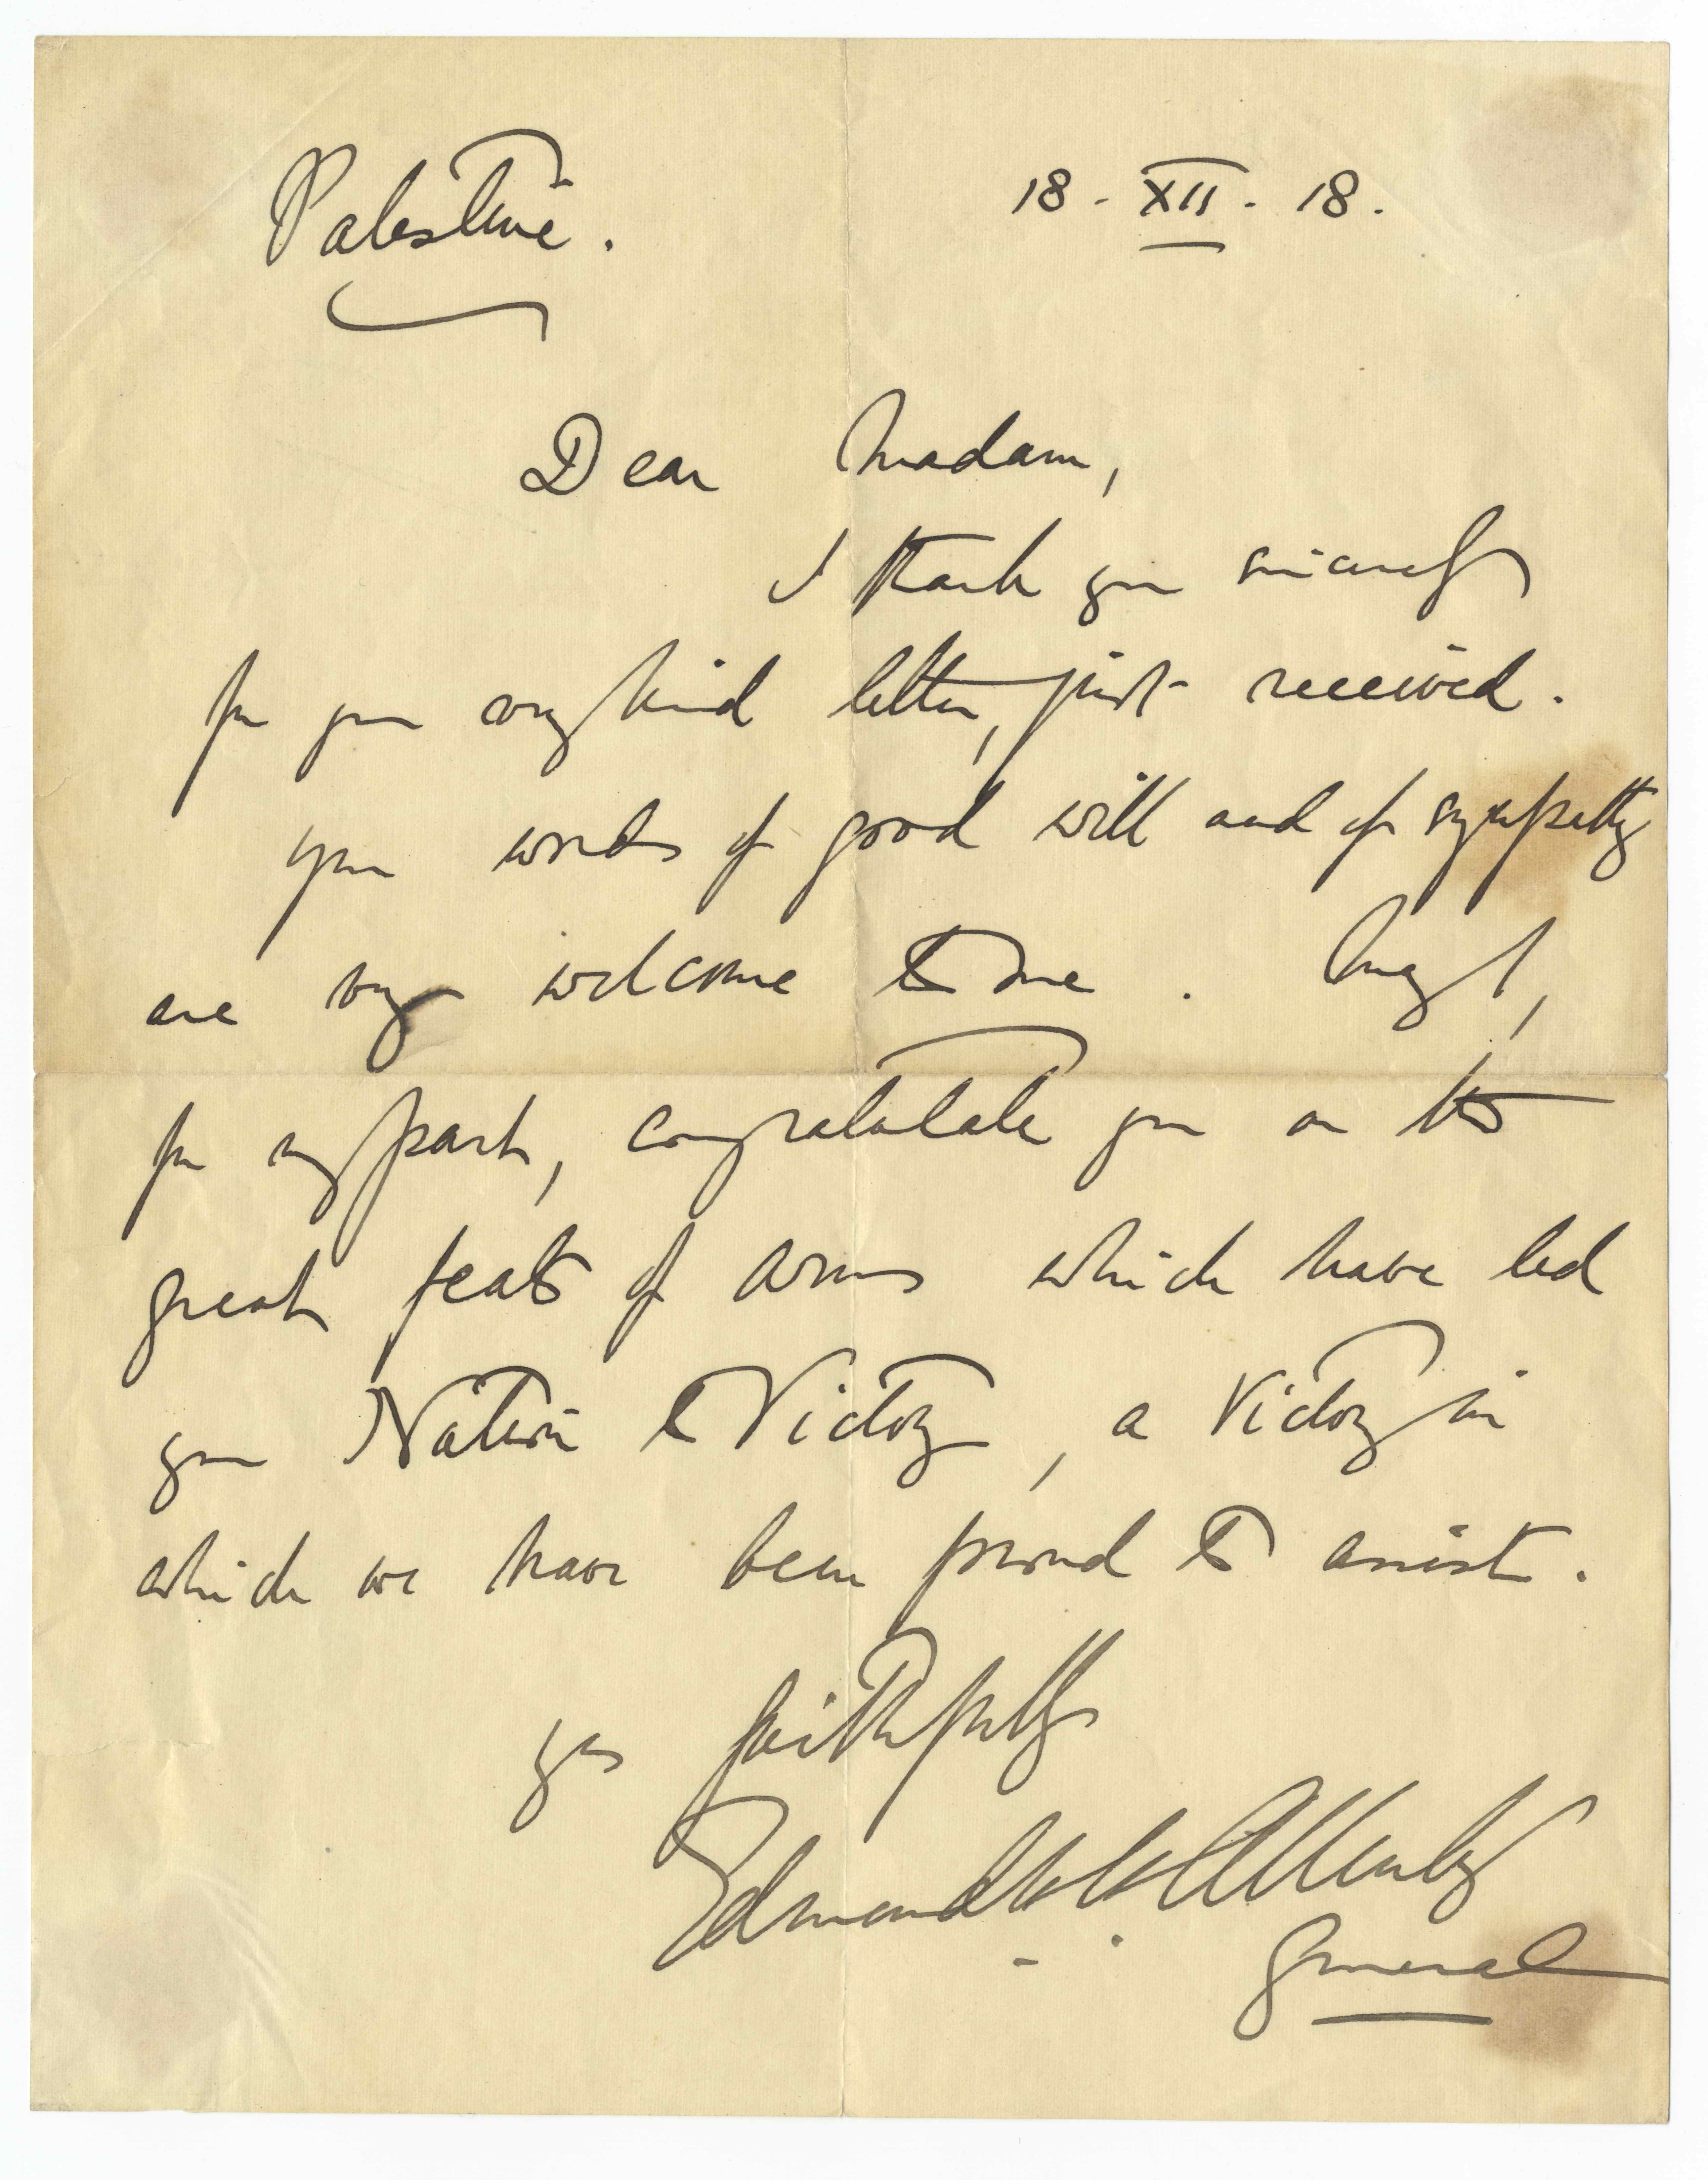 Palestine.
18 - XII - 18.
Dear Madam,
I thank you sincerely
for your very kind letter, just received.
Your words of good will and of sympathy
are very welcome to me. May I,
for my part, congratulate you on the
great feats of arms which have led
your Nation to Victory, a Victory in
which we have been proud to assist.
Yrs faithfully
Edmund H. H. Allenby
General